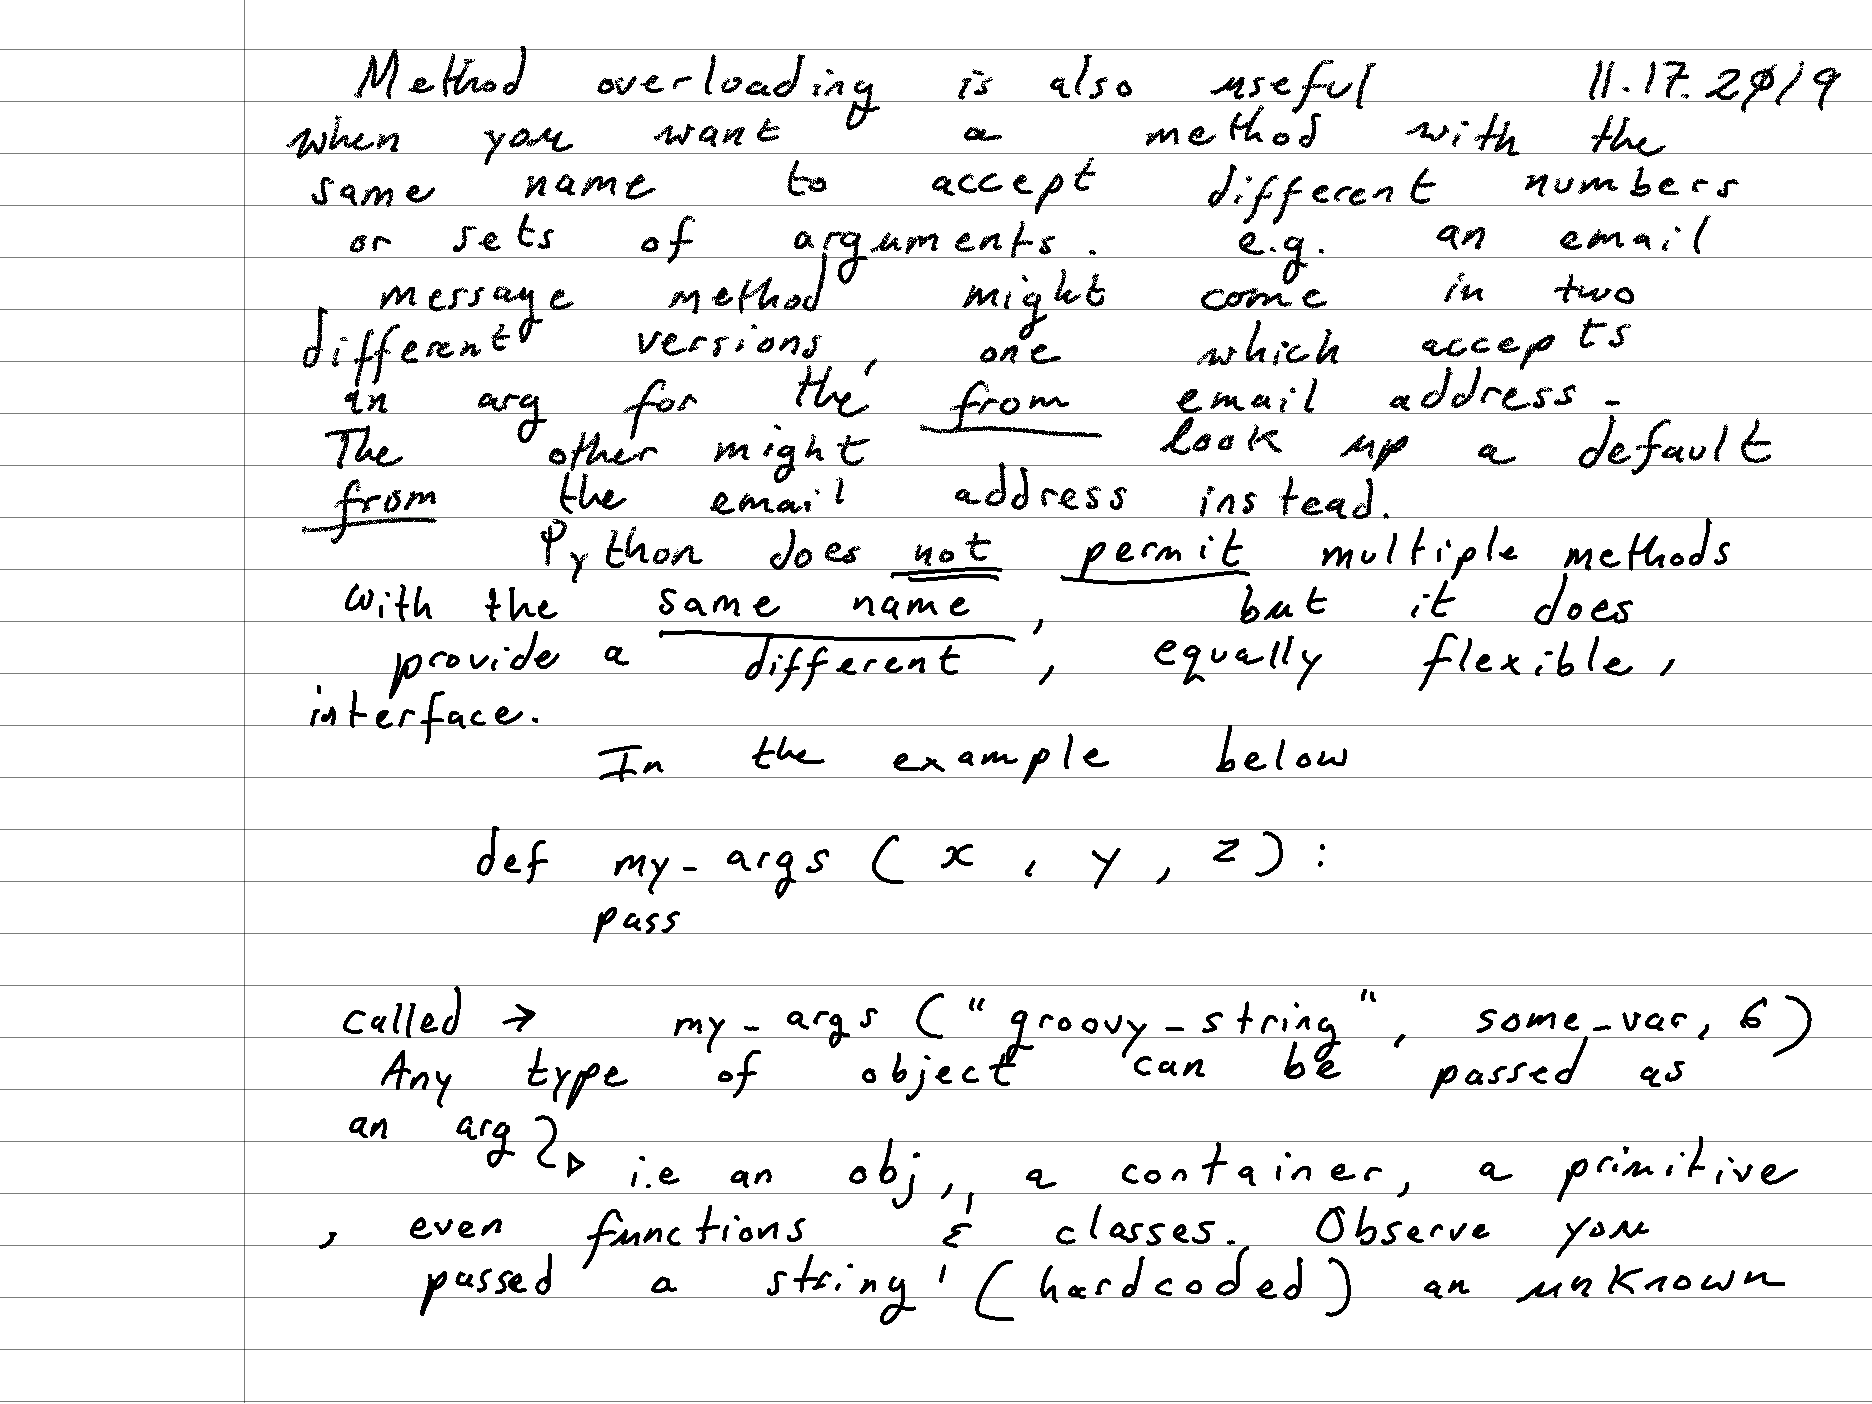 Method overloading is also useful 11.17.2019
when you want a method with the
same name to accept different numbers
or sets of arguments. e.g. an email
message method might come in two
different versions, one which accepts
an arg for the from email address.
The other might look up a default
from the email address instead.
Python does not permit multiple methods
with the same name, but it does
provide a different, equally flexible,
interface.
In the example below
def my_args (x, y, z):
pass
called → my_args ("groovy_string", some_var, 6)
Any type of object can be passed as
an arg
i.e an obj,, a container, a primitive
, even functions & classes. Observe you
passed a string, (hardcoded) an unknown